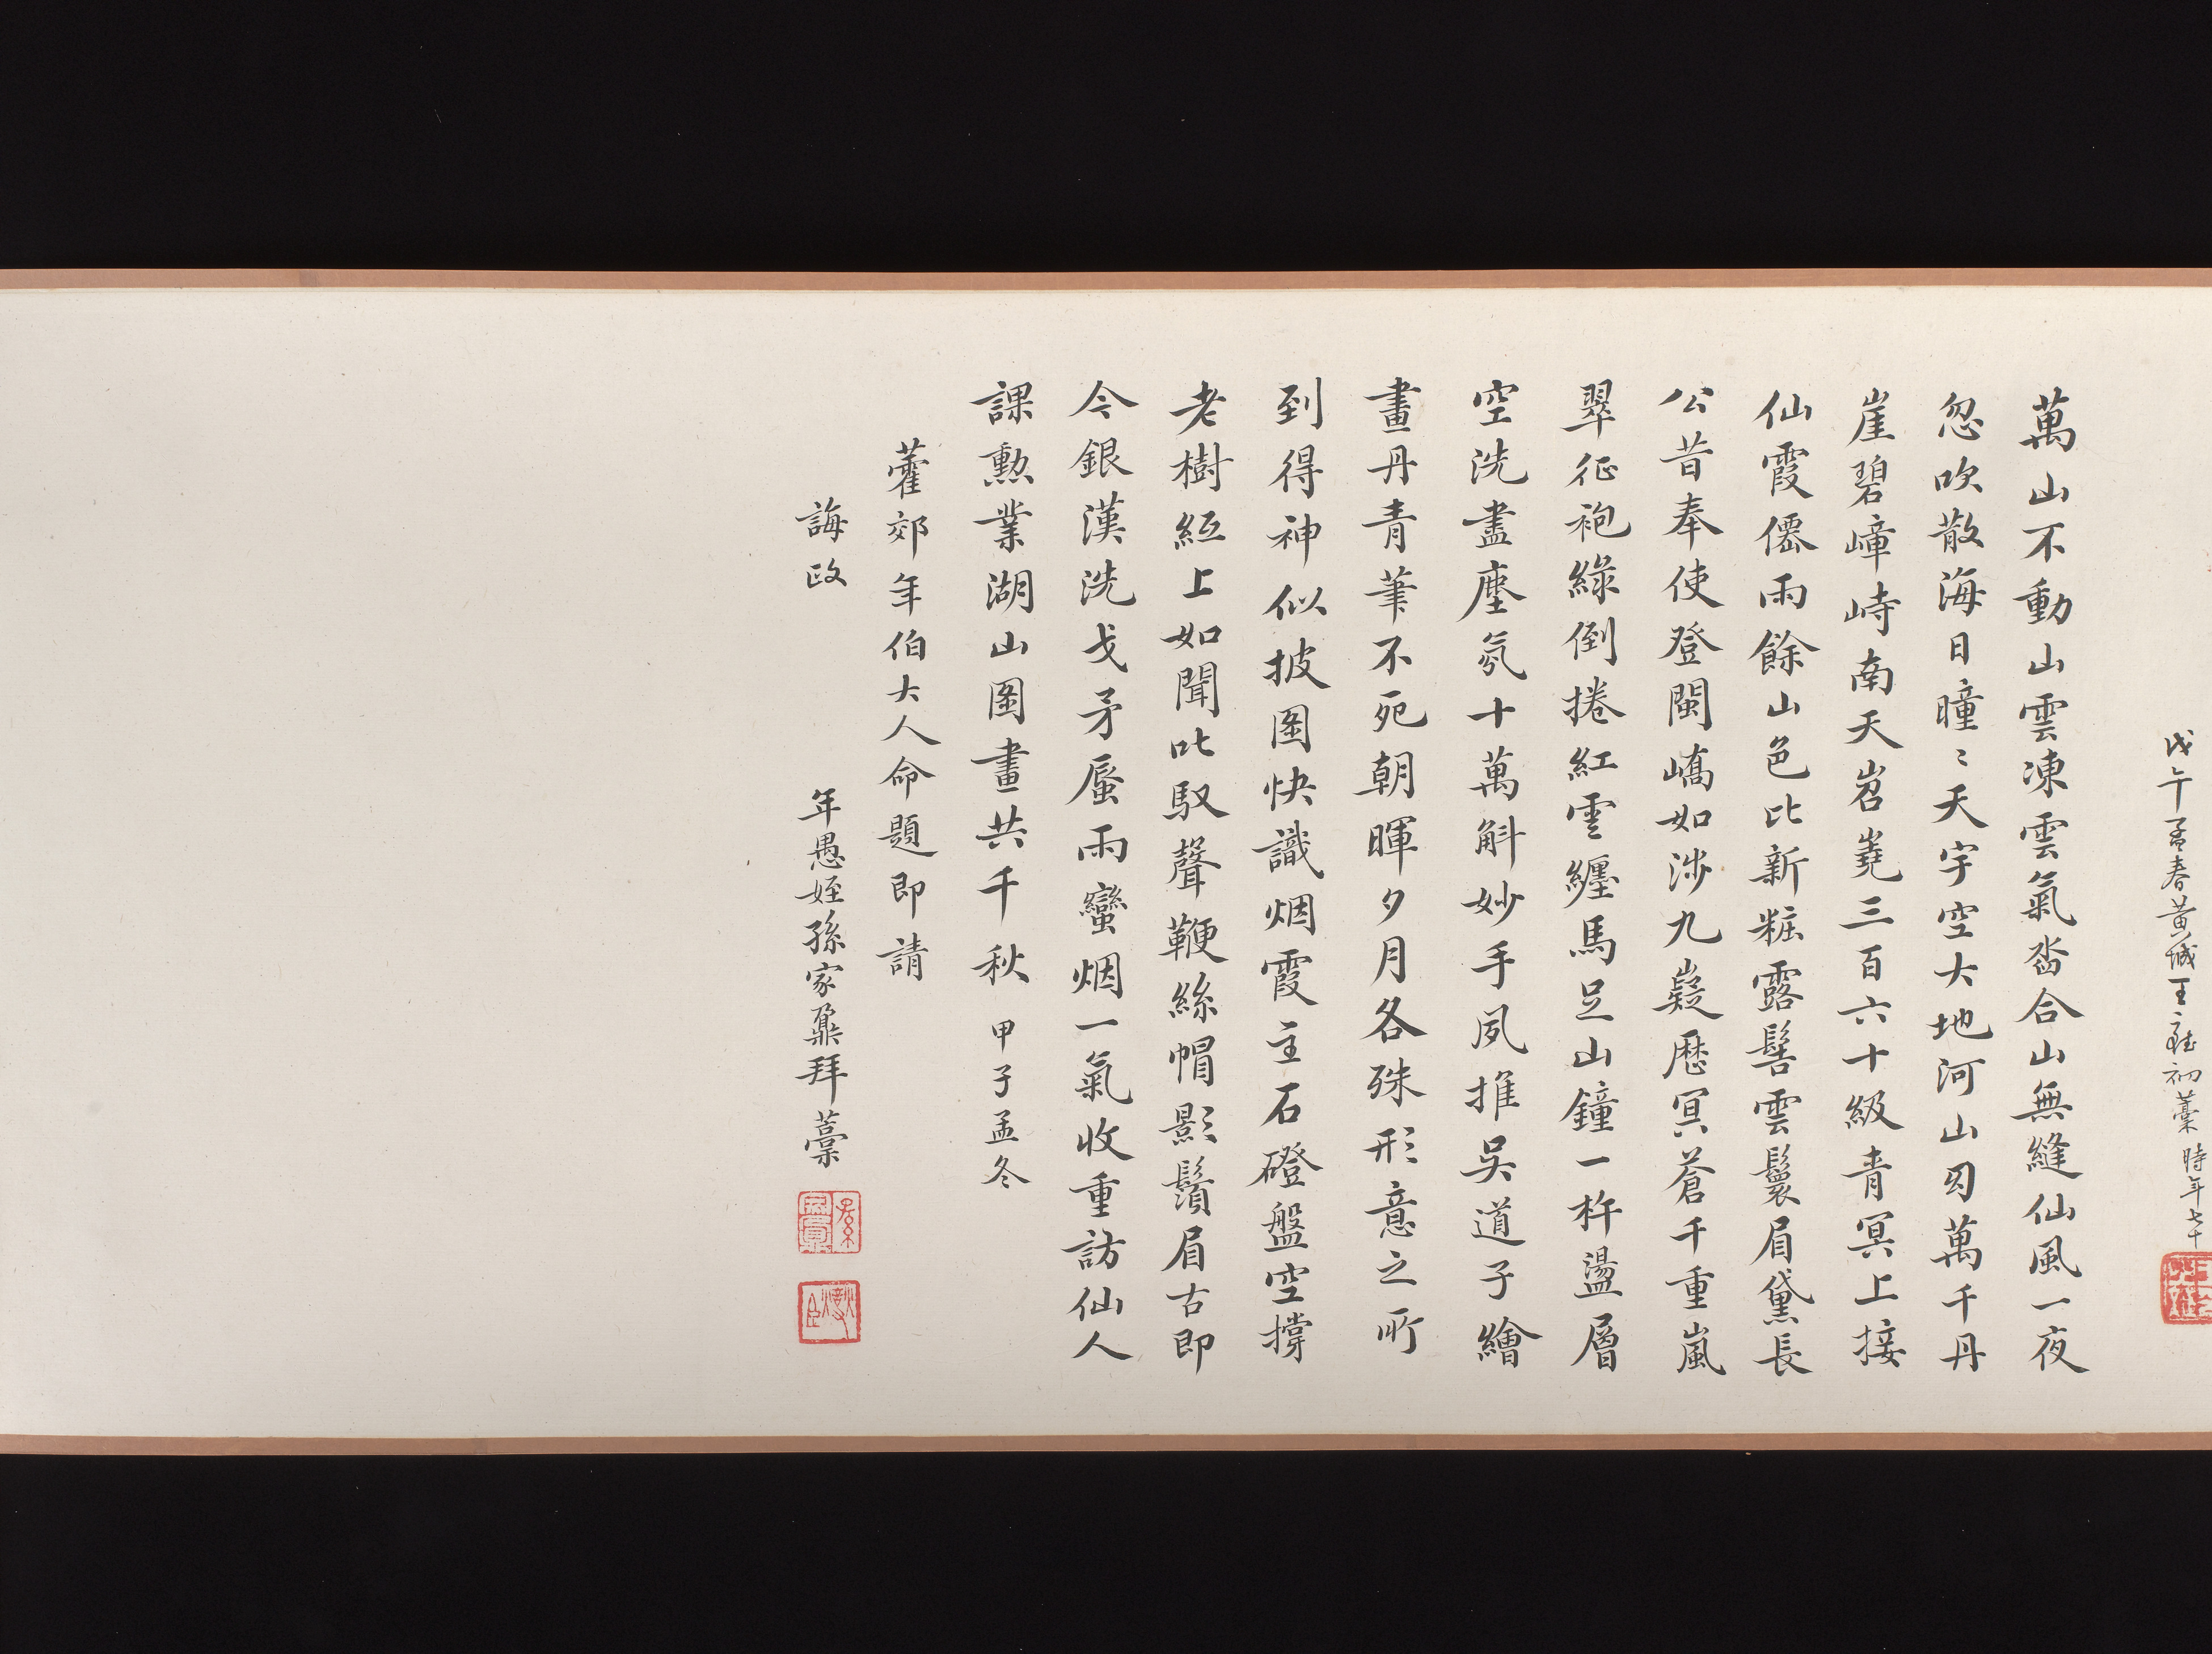 戊午孟春黃城王初藁時年七十
萬山不動山雲凍雲氣沓合山無縫仙風一夜
忽吹散海日曈〻天宇空大地河山幻萬千丹
崖碧嶂峙南天岧嶤三百六十級青冥上接
仙霞僊雨餘山色比新粧露髻雲鬟眉黛長
公昔奉使登閩嶠如涉九嶷歷冥蒼千重嵐
翠征袍綠倒捲紅雲纏馬足山鐘一杵盪層
空洗盡塵氛十萬斛妙手夙推吳道子繪
畫丹青筆不死朝暉夕月各殊形意之所
到得神似披圖快識烟霞主石磴盤空撐
老樹絙上如聞叱馭聲鞭絲帽影鬚眉古即
今銀漢洗戈矛蜃雨蠻烟一氣收重訪仙人
課勳業湖山圖畫共千秋 甲子孟冬
藿郊年伯大人命題即請
誨政 年愚姪孫家鼐拜藁